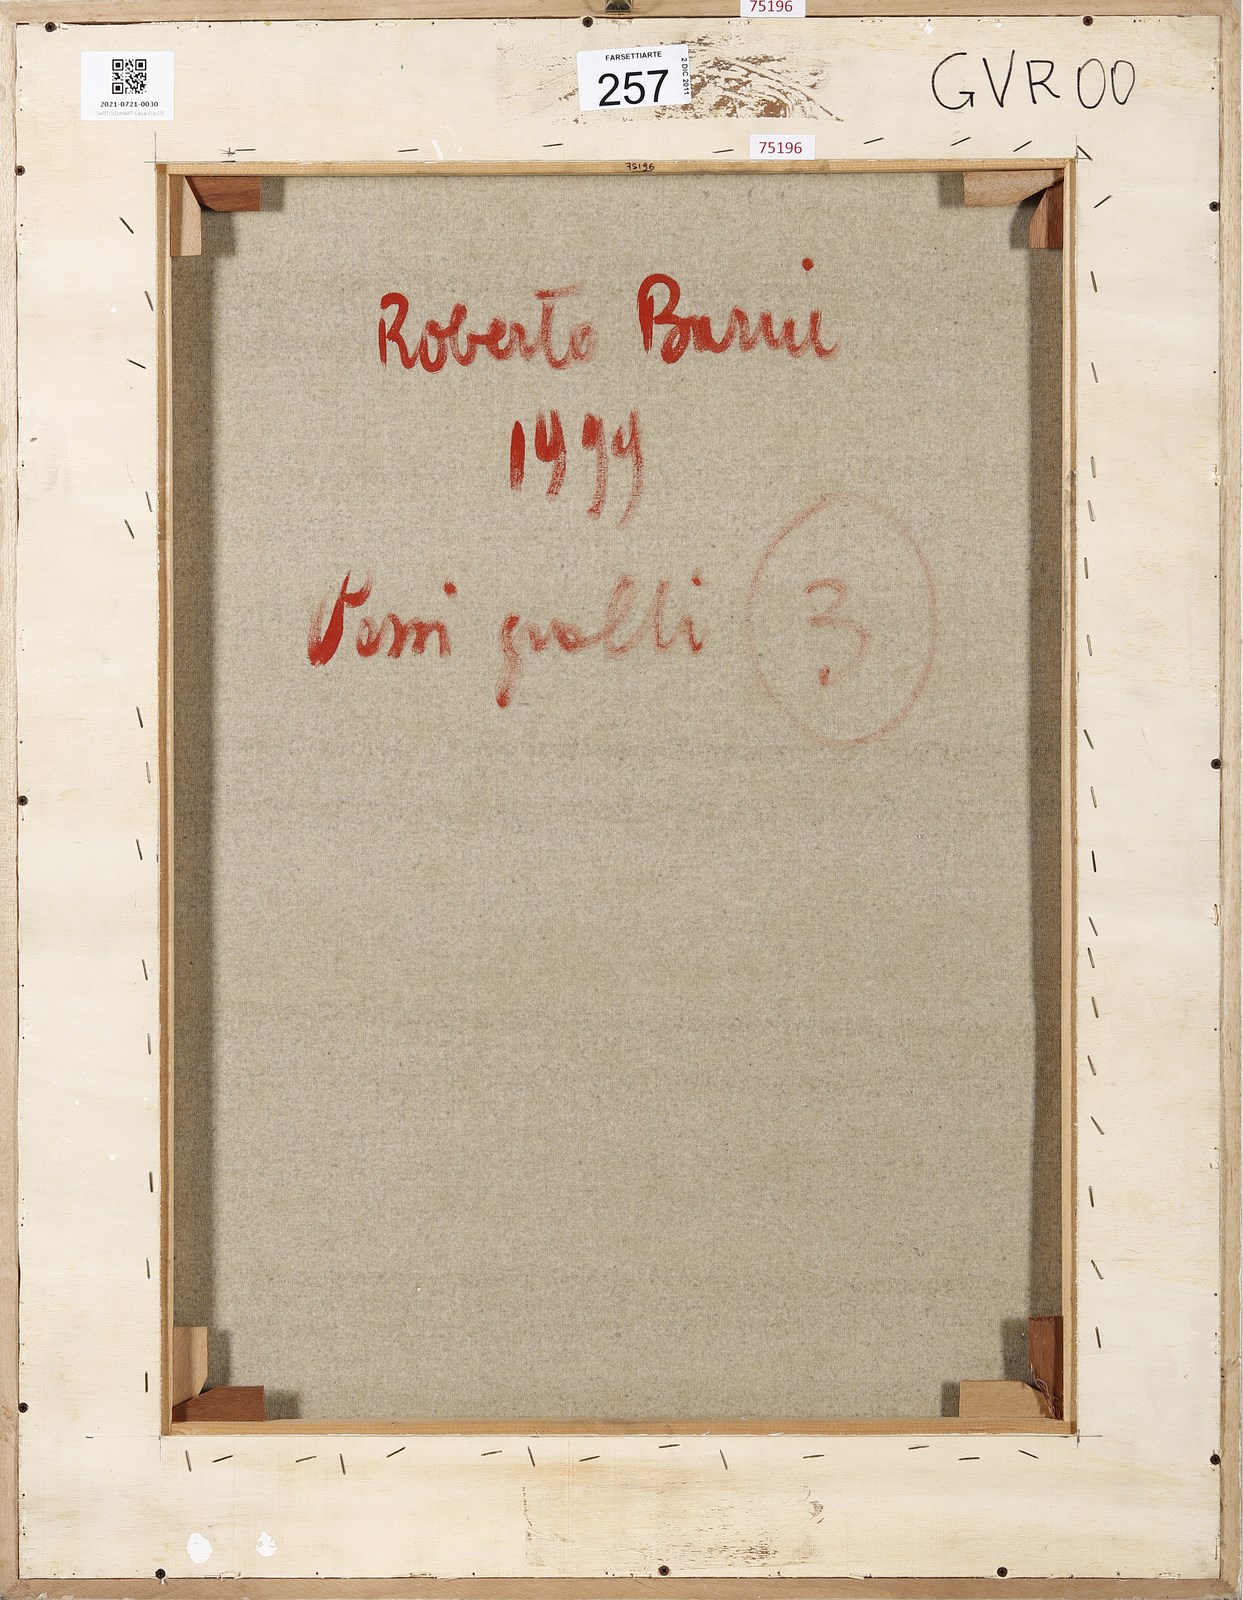 75196
FARSETTIARTE
257
2 DIC 2011
GVR00
2021-0721-0030
CAPITOLIUMART CASA D'ASTE
75196
75196
Roberto Barni
1999
gialli
3